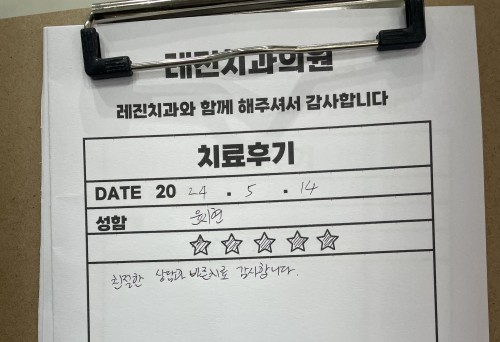 레진치과의원
레진치과와 함께 해주셔서 감사합니다
치료후기
DATE 20 24 . 5 . 14
성함 윤지현
친절한 상담과 빠른치료 감사합니다.